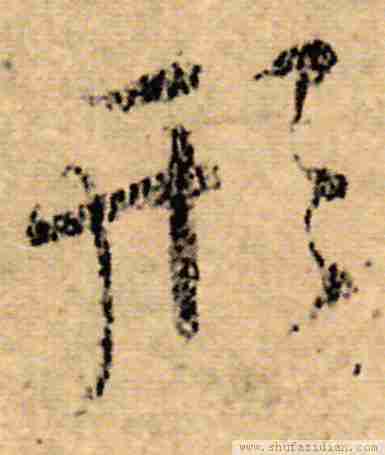 形
www.shufazidian.com